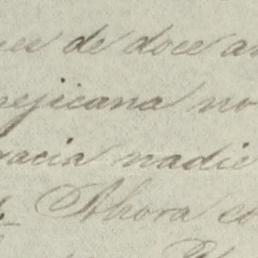 de doce
mejicana no
racia nadie
Ahora co